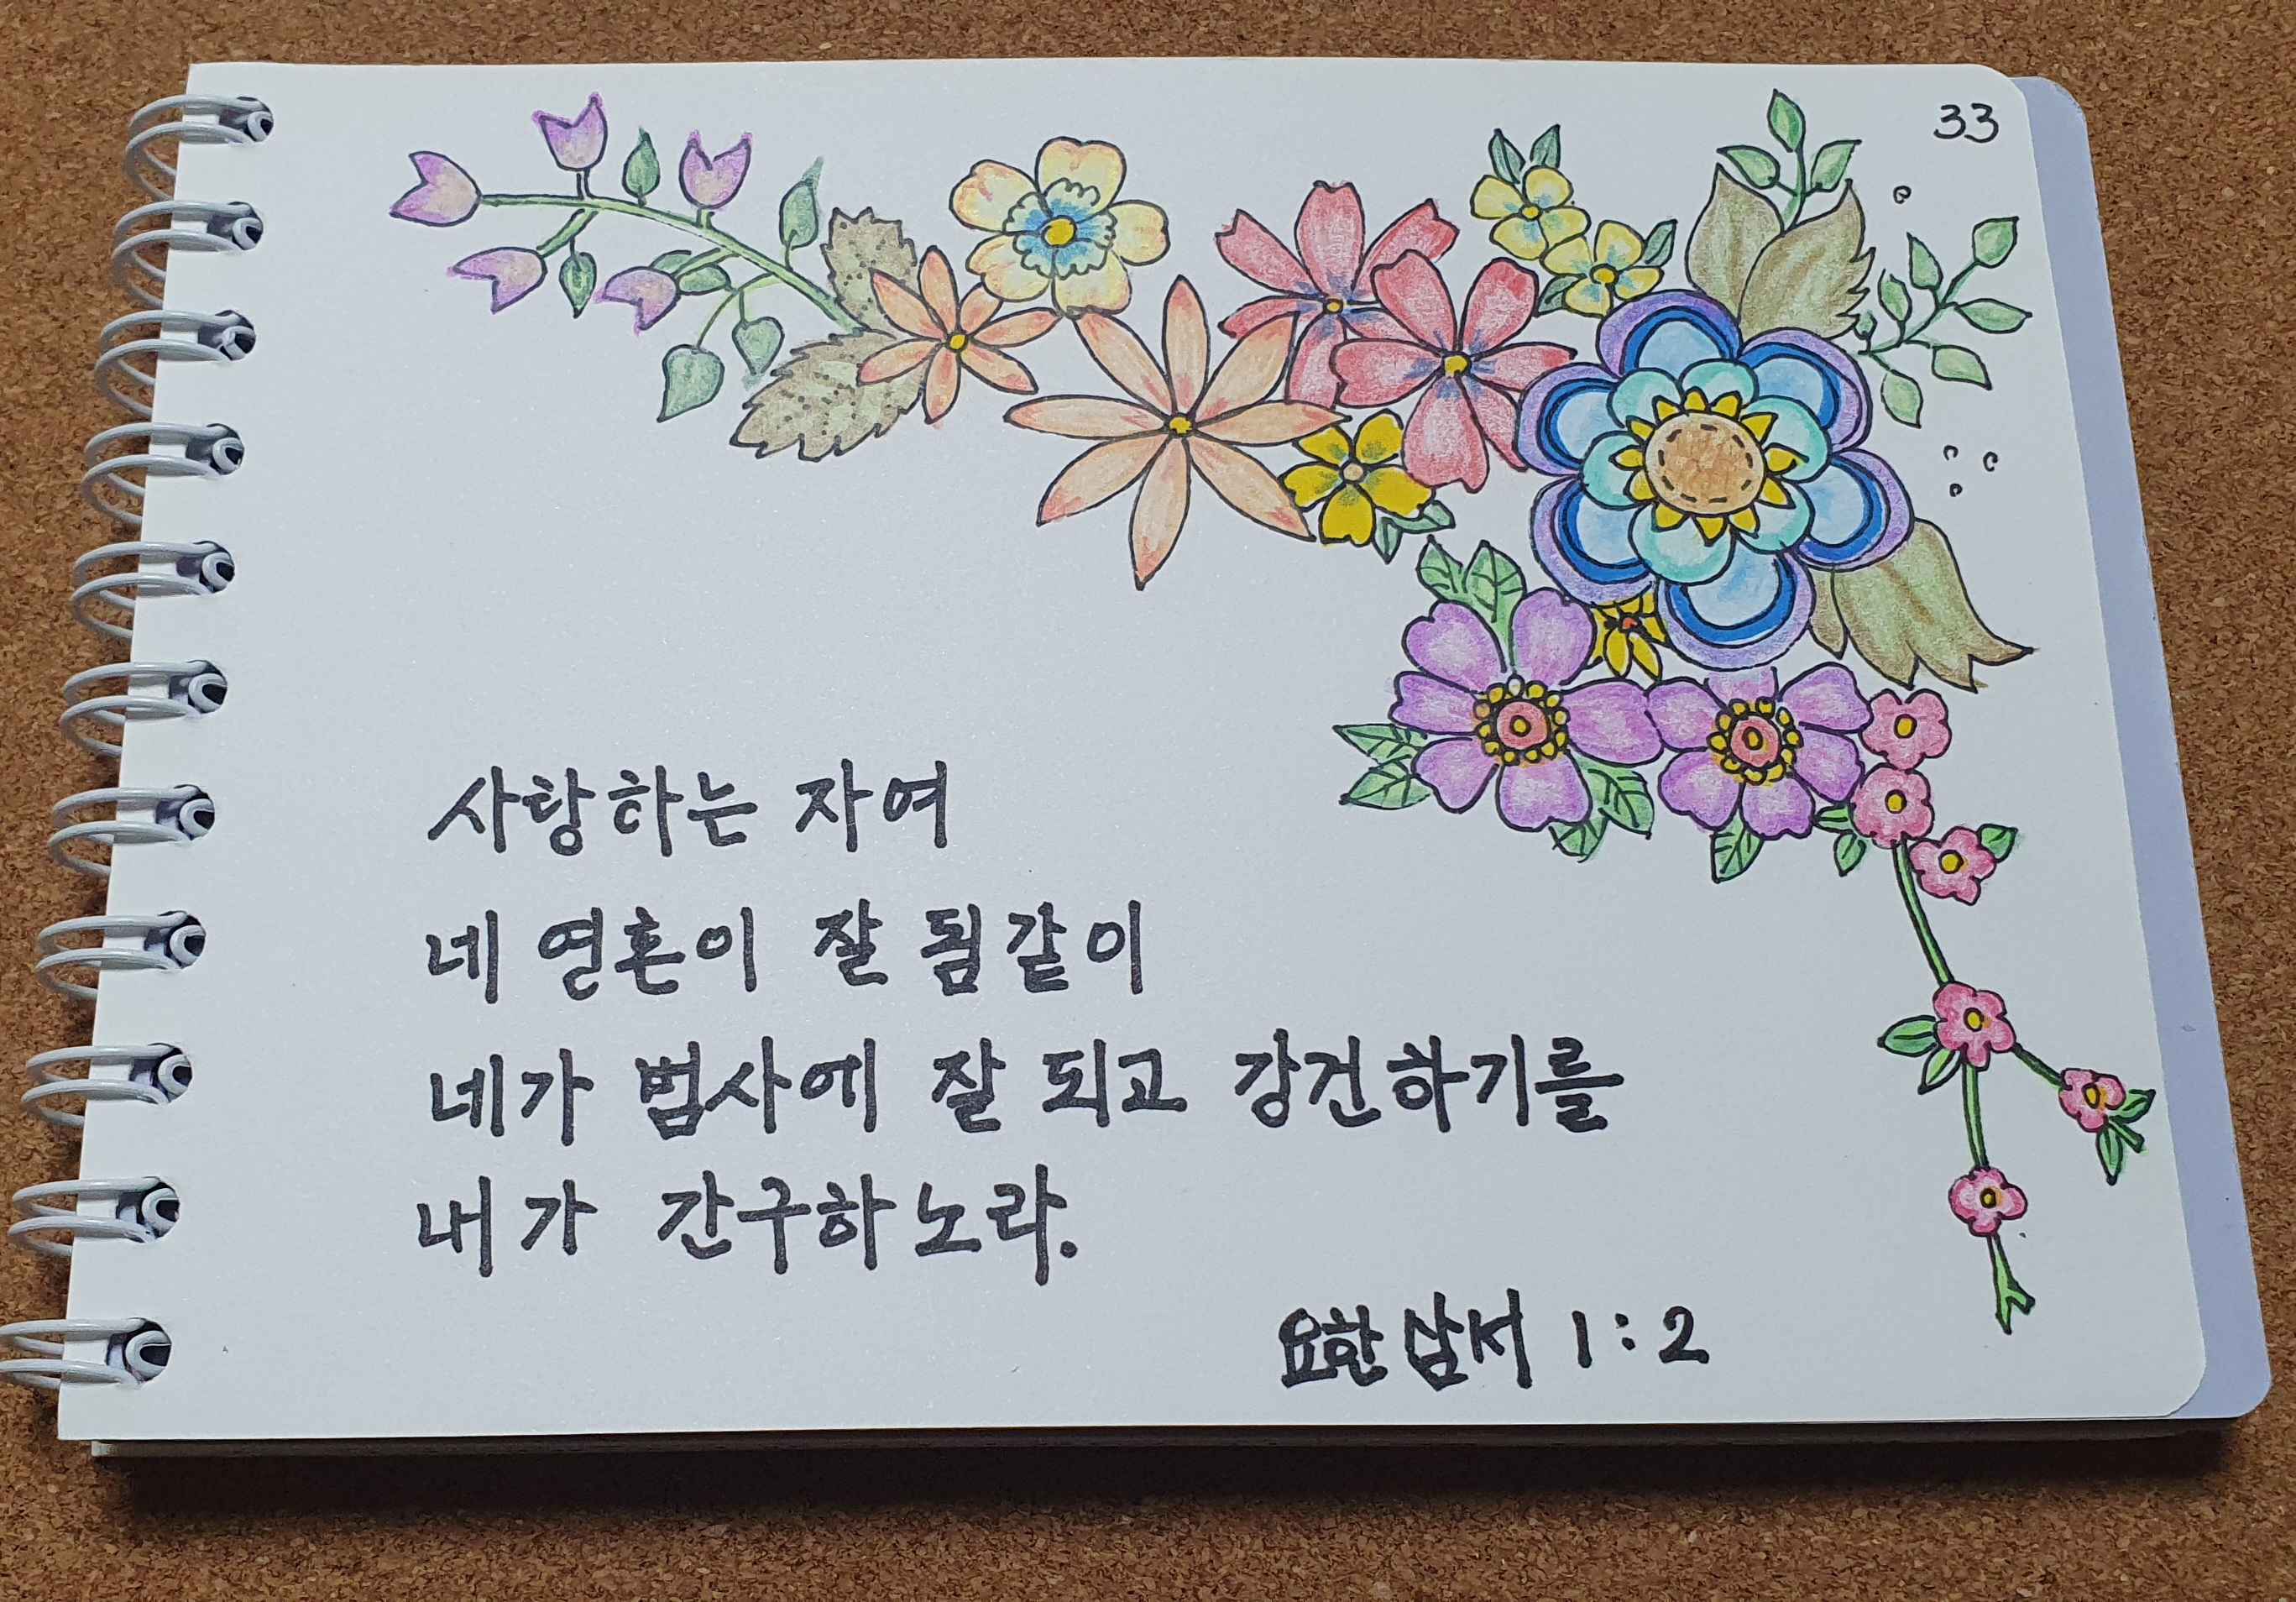 33
사랑하는 자여
네 영혼이 잘 됨같이
네가 범사에 잘 되고 강건하기를
내가 간구하노라.
요한삼서 1:2